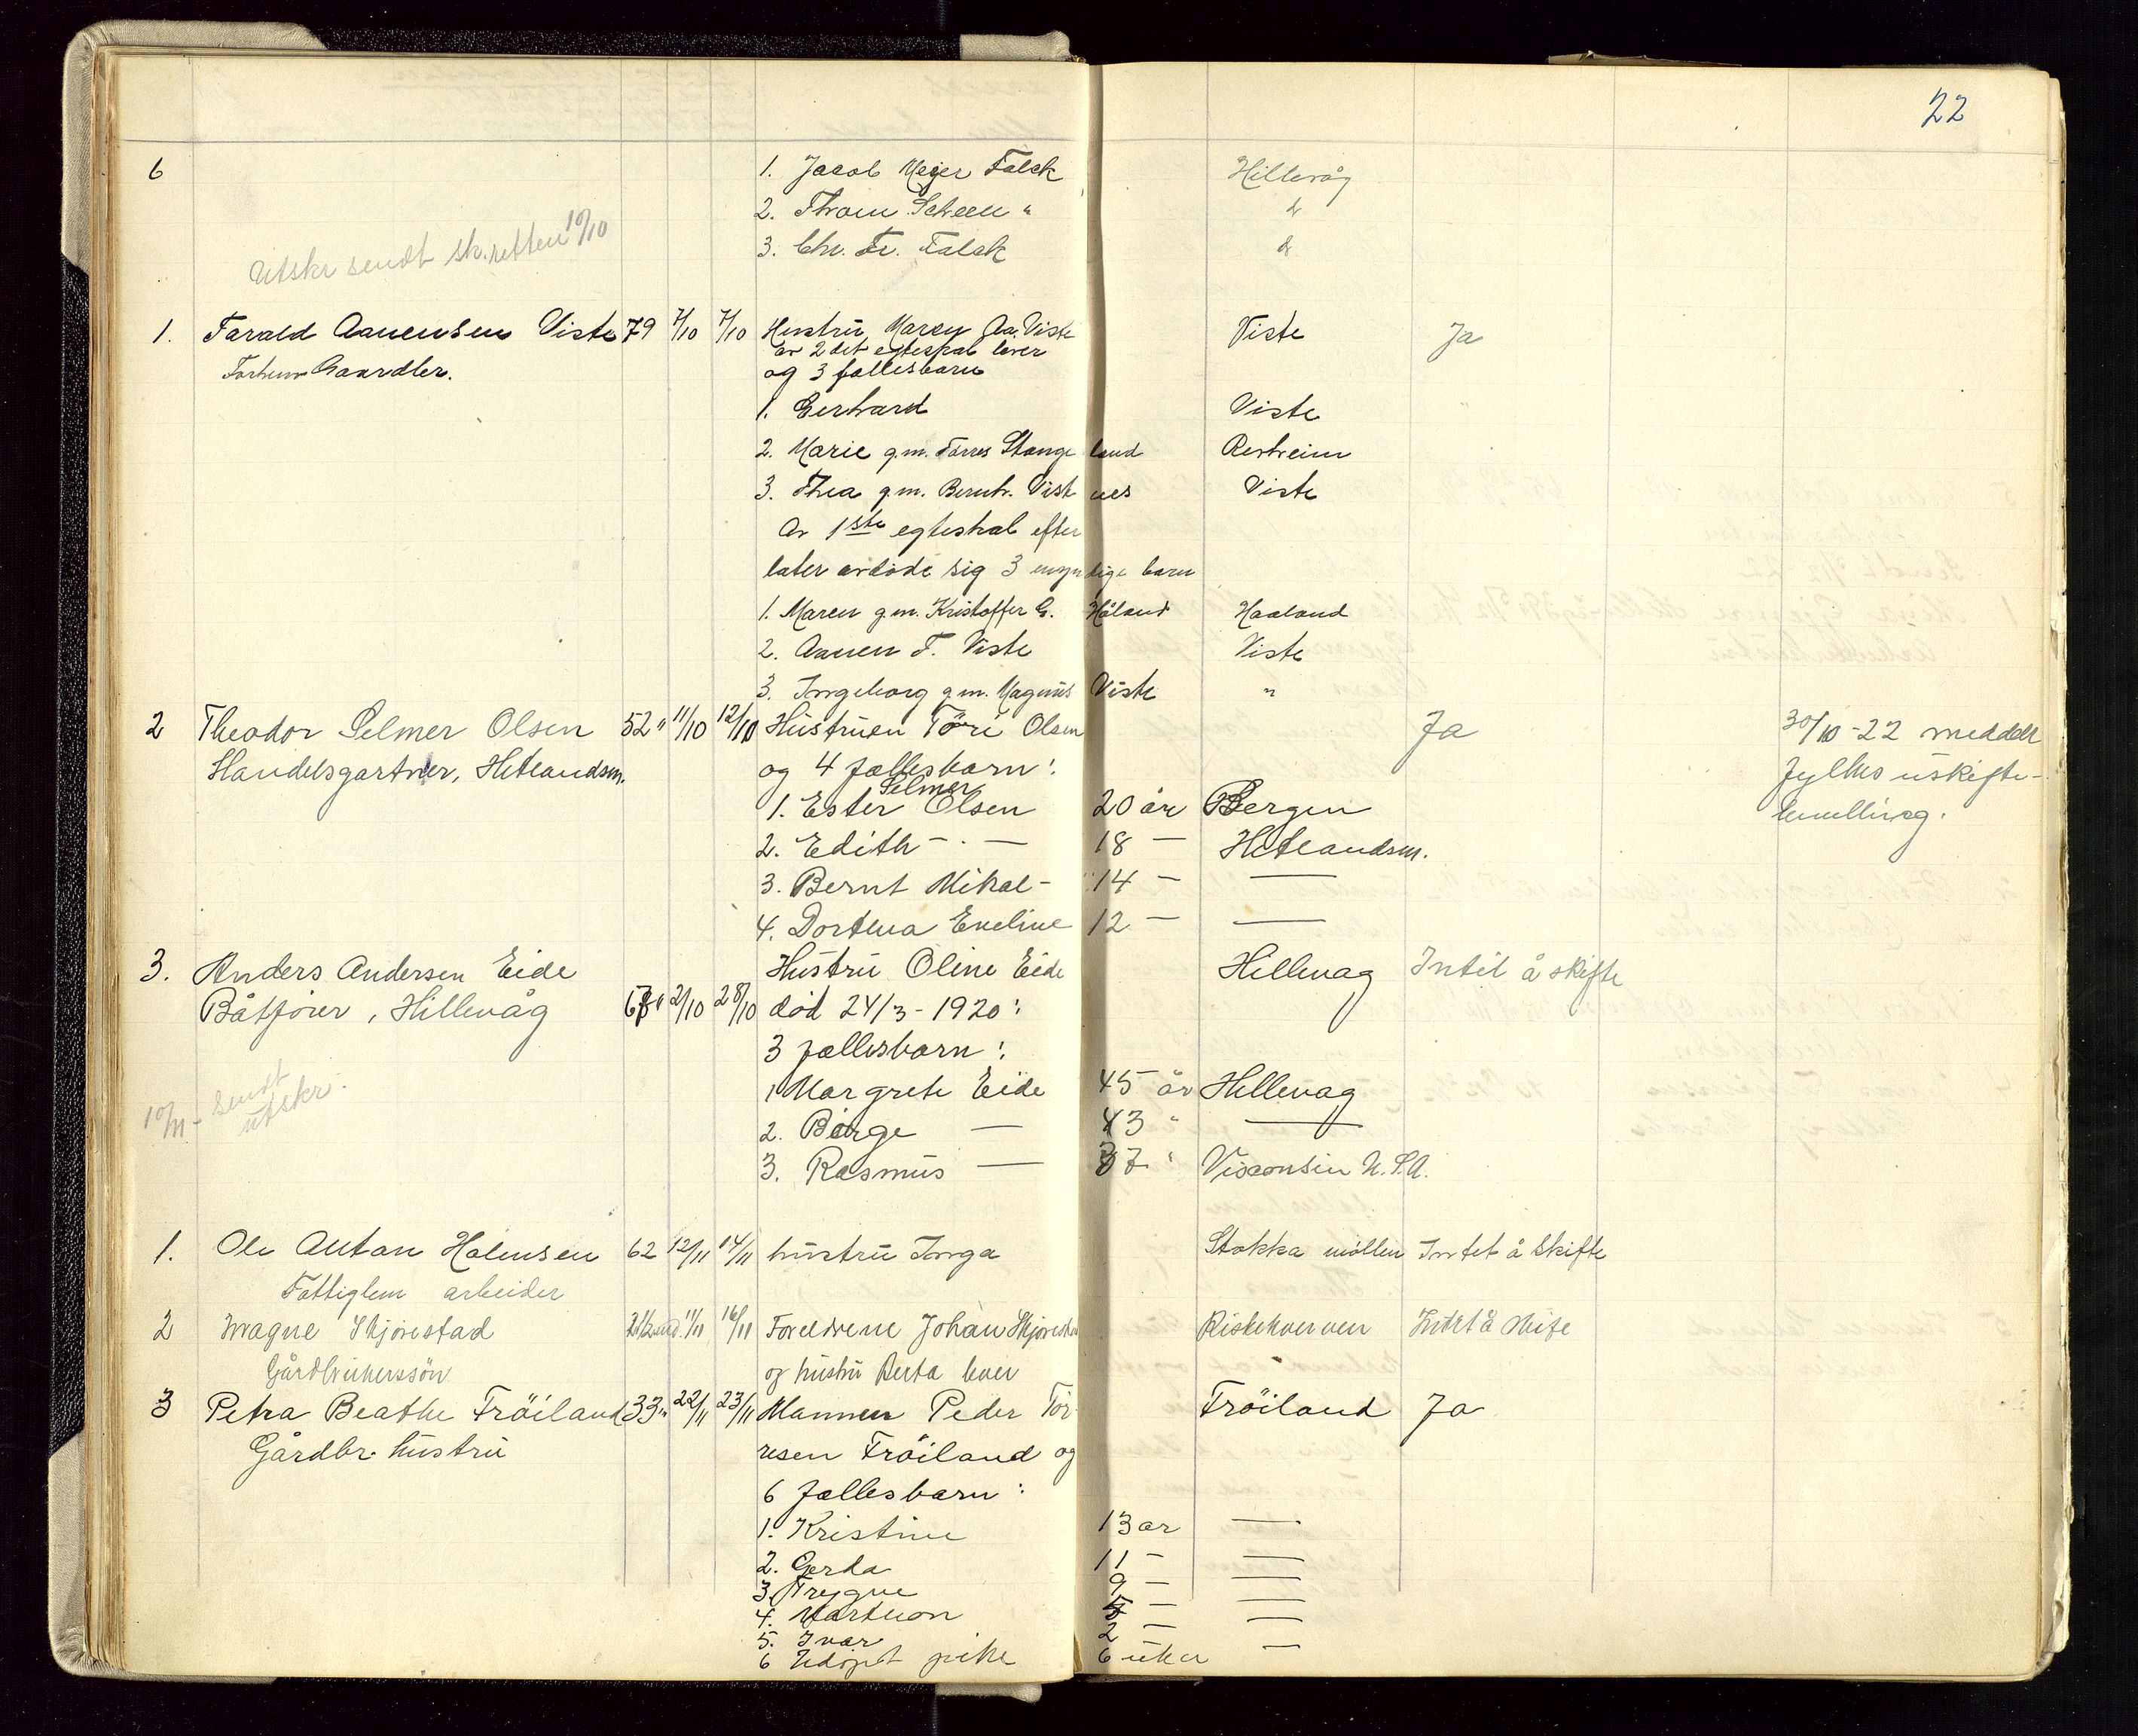 22
6 1. Jacob Meyer Falck Hillevåg
2. Thom Scheen " d
3. Chr. Fr. Falck d
Utskr sendt sk.retten 10/10
1. Tarald Aanensen Viste 79 7/10 7/10 Hustru Maren Aa. Viste Viste Ja
Forhenv Gaardbr. av 2det egteskab lever
og 3 fællesbarn
1. Gerhard Viste
2. Marie g.m. Torres Stangeland Resheim
3. Thea g.m. Bernh. Vistnes Viste
Av 1ste egteskab efter
later avdöde sig 3 myndige barn
1. Maren g.m. Kristoffer G. Håland Haaland
2. Aanen T. Viste Viste
3. Ingeborg g.m. Magnus Viste "
2 Theodor Selmer Olsen 52 " 11/10 12/10 Hustruen Töri Olsen Ja 30/10-22 meddelt
Handelsgartner, Hetlandsm. og 4 fællesbarn: fylkes uskifte-
1. Ester Selmer Olsen 20 år Bergen bevilling.
2. Edith - - — 18 — Hetlandsm.
3. Bernt Mikal - 14 — —
4. Dortena Eveline 12 — —
3. Anders Andersen Eide Hustru Oline Eide Hillevag Intet å skifte
Båtförer, Hillevåg 68 " 2/10 28/10 död 24/3 - 1920:
3 fællesbarn:
10/11 - sendt utskr. 1 Margrete Eide 45 år Hillevag
2. Börge — 43 " —
3. Rasmus — 37 " Visconsin U.S.A.
1. Ole Anton Halensen 62 12/11 14/11 hustru Inga Stokka möllen Intet å skifte
Fattiglem arbeider
2 Magne Skjörestad 2 1/2 mnd. 11/11 16/11 Foreldrene Johan Skjörestad Riskekverven Intet å skife
Gårdbrukerssön og hustru Berta lever
3 Petra Beathe Fröiland 33 " 22/11 23/11 Mannen Peder Tor- Fröiland Ja
Gårdbr. hustru resen Fröiland og
6 fællesbarn:
1. Kristine 13 ar —
2. Gerda 11 — —
3. Trygve 9 — —
4. Marthon 5 — —
5. Ivar 2 — —
6 Udöpt pike 6 uker